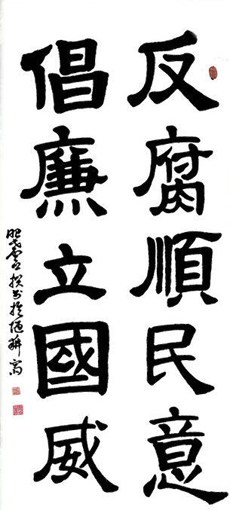 反腐順民意
倡廉立國威